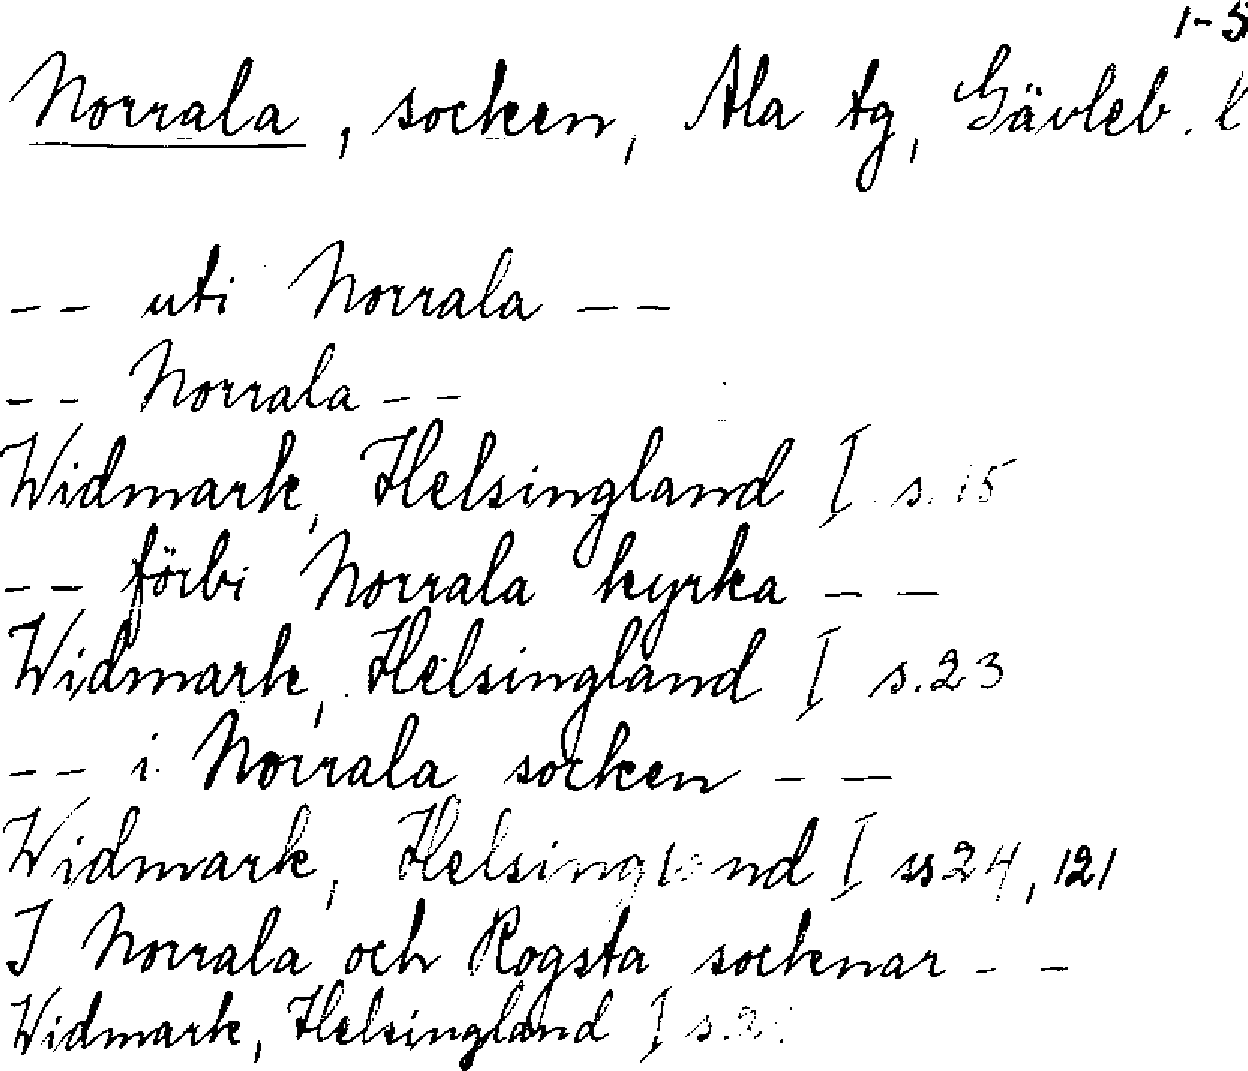 1-5
Norrala, socken, Ala tg, Gävleb. l
-- uti Norrala --
-- Norrala --
Widmark, Helsingland I s. 15
-- förbi Norrala kyrka --
Widmark, Helsingland I s.23
-- i Norrala socken --
Widmark, Helsingland I ss24, 121
I Norrala och Rogsta socknar --
Widmark, Helsingland I